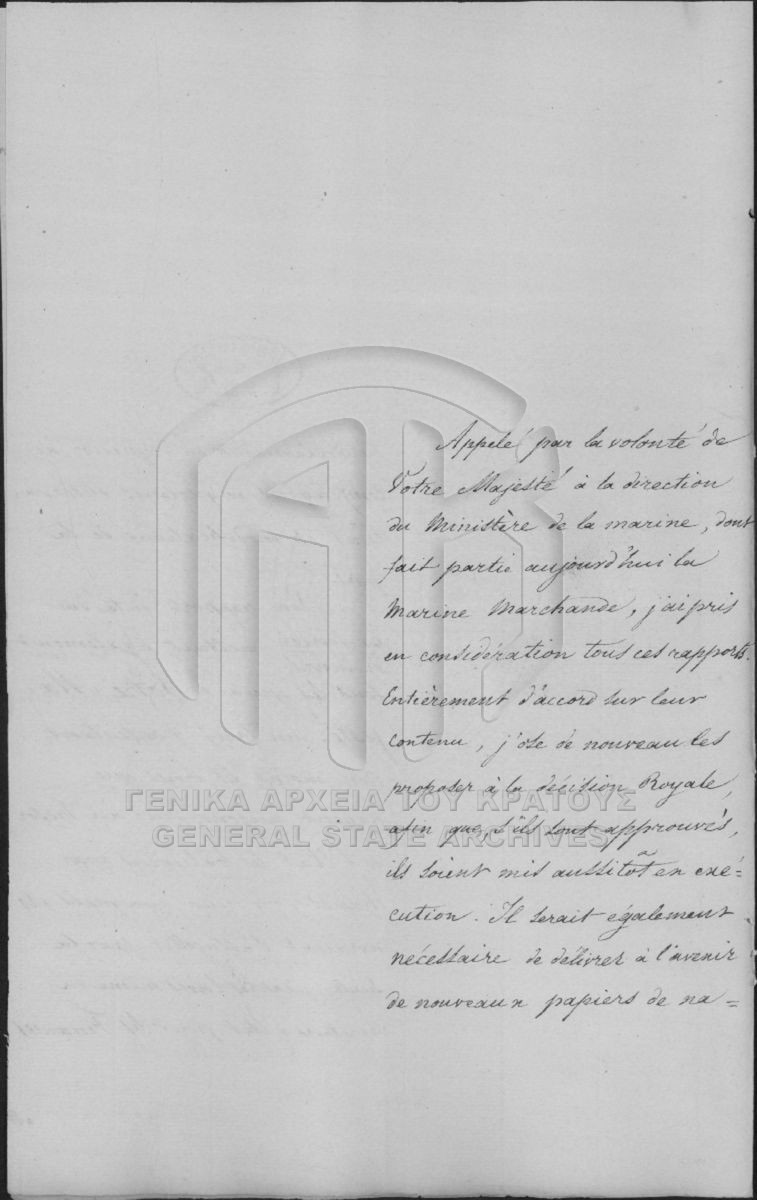 Appelé par la volonté de
Votre Majesté à la direction
du Ministère de la marine, dont
fait partie aujourd'hui la
Marine Marchande, j'ai pris
en considération tous ces rapports.
Entièrement d'accord sur leur
contenu, j'ose de nouveau les
proposer à la décision Royale,
afin que, s'ils sont approuvés,
ils soient mis aussitôt en exé=
cution. Il serait également
nécessaire de délivrer à l'avenir
de nouveaux papiers de na=
ΓΕΝΙΚΑ ΑΡΧΕΙΑ ΤΟΥ ΚΡΑΤΟΥΣ
GENERAL STATE ARCHIVES